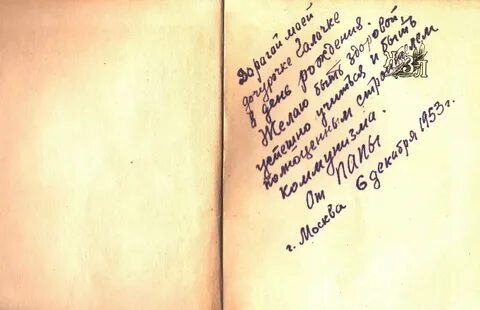 Дорогой моей
дочурочке Галочке
в день рождения.
Желаю быть здоровой
успешно учиться и быть
полноценным строителем
коммунизма.
От ПАПЫ
г. Москва 6 декабря 1953 г.
ЖЗЛ